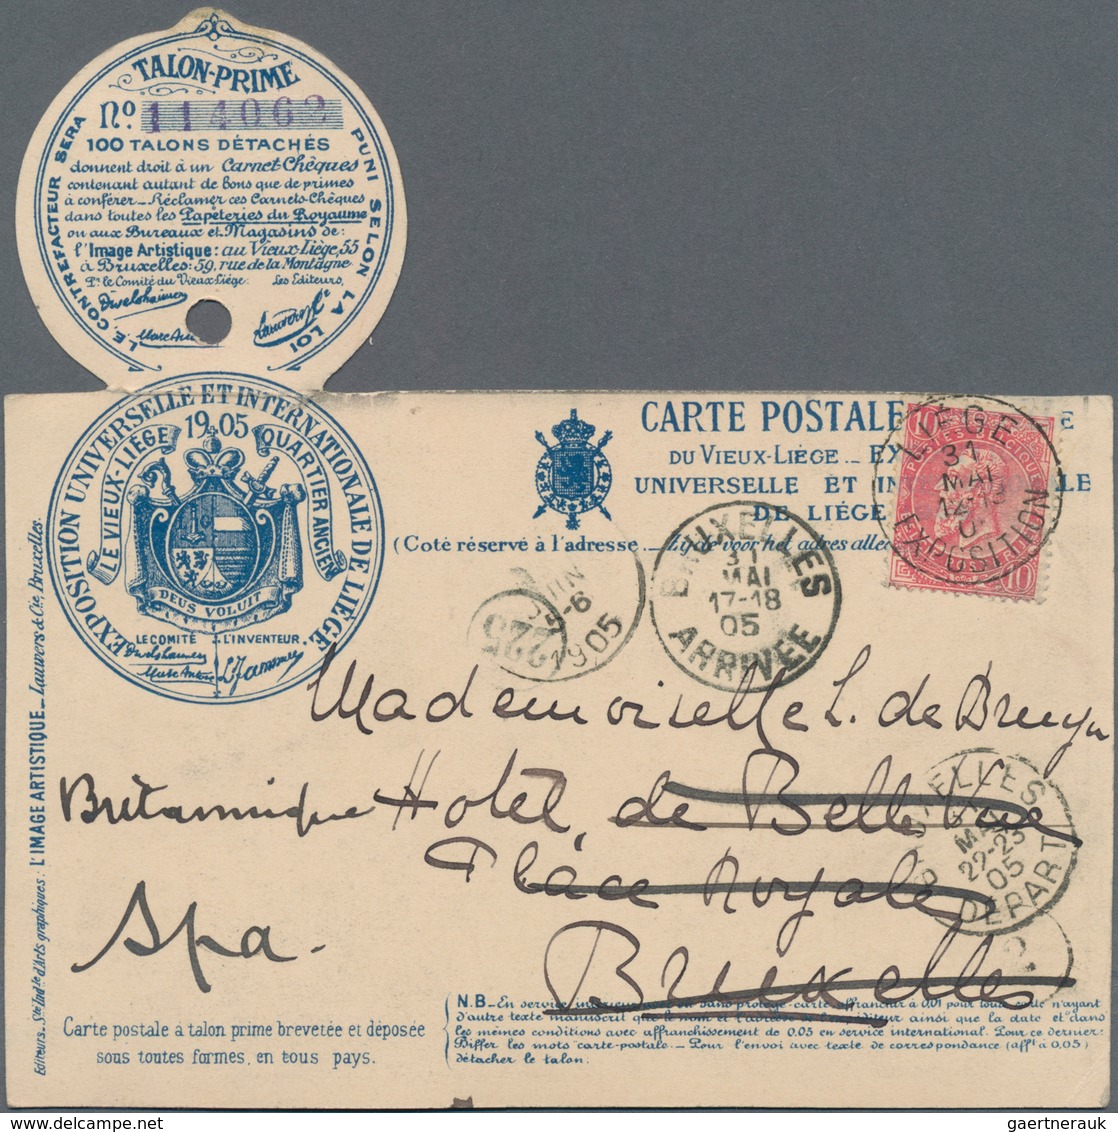 TALON-PRIME
No. 114062
100 TALONS DÉTACHÉS
donnent droit à un Carnet-Chèques
contenant autant de bons que de primes
à conférer_Réclamer ces Carnets-Chèques
dans toutes les Papeteries du Royaume
ou aux Bureaux et Magasins de:
l'Image Artistique: au Vieux-Liége, 55
à Bruxelles: 59, rue de la Montagne
Pr. le Comité du Vieux-Liége: Les Editeurs,
LE CONTREFACTEUR SERA PUNI SELON LA LOI
EXPOSITION UNIVERSELLE ET INTERNATIONALE DE LIÉGE
1905
LE VIEUX-LIÉGE QUARTIER ANCIEN
DEUS VOLUIT
LE COMITÉ L'INVENTEUR.
CARTE POSTALE
DU VIEUX-LIÉGE _ EX
UNIVERSELLE ET IN LE
DE LIÉGE
(Coté réservé à l'adresse _ Zijde voor het adres
LIEGE
31
MAI
EXPOSITION
10 10
BRUXELLES
31
MAI
17-18
05
ARRIVÉE
JUIN
6
1905
225
BRUXELLES
MAI
22-23
05
DEPART
Mademoiselle L. de Bruyn
Britannique Hotel de Belle Vue
Place Royale
Spa.
Bruxelles
Editeurs_Sté Indle d'Arts graphiques: L'IMAGE ARTISTIQUE_Lauwers & Cie, Bruxelles.
Carte postale à talon prime brevetée et déposée
sous toutes formes, en tous pays.
N.B_En service intérieur sans protège-carte affranchir à 0,01 pour toute carte n'ayant
d'autre texte manuscrit que le nom et l'adresse de l'expéditeur ainsi que la date et dans
les mêmes conditions avec affranchissement de 0.05 en service international. Pour ce dernier:
Biffer les mots carte-postale_Pour l'envoi avec texte de correspondance (afft à 0,05)
détacher le talon:
gaertnerauk